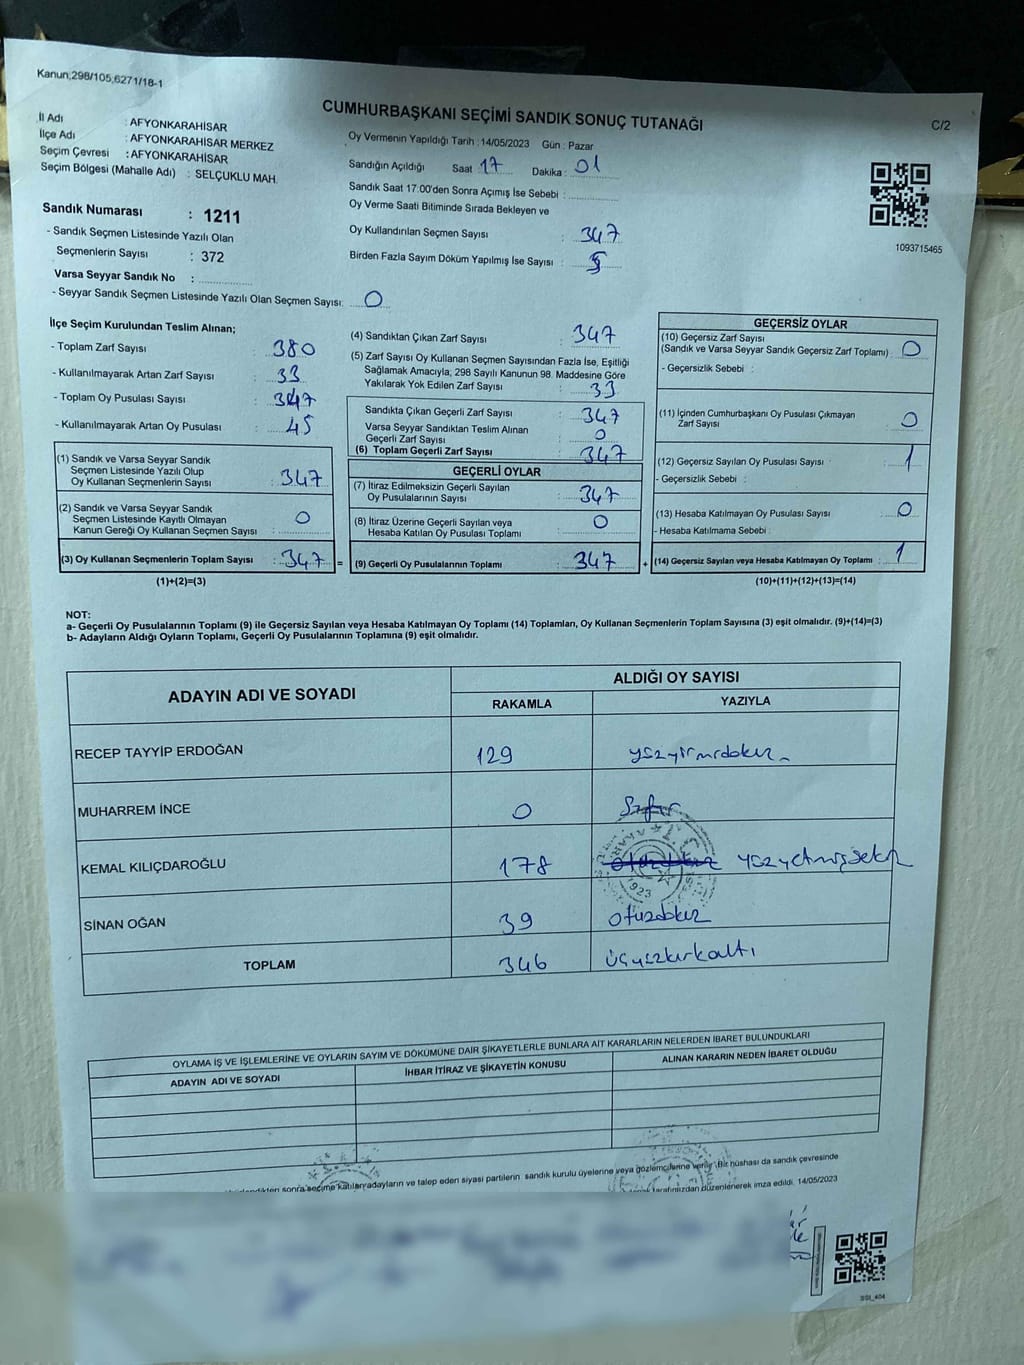 Kanun;298/105,6271/18-1
CUMHURBAŞKANI SEÇİMİ SANDIK SONUÇ TUTANAĞI
C/2
İl Adı : AFYONKARAHİSAR
İlçe Adı : AFYONKARAHİSAR MERKEZ
Seçim Çevresi : AFYONKARAHİSAR
Seçim Bölgesi (Mahalle Adı) : SELÇUKLU MAH.
Sandık Numarası : 1211
- Sandık Seçmen Listesinde Yazılı Olan
Seçmenlerin Sayısı : 372
Varsa Seyyar Sandık No :
- Seyyar Sandık Seçmen Listesinde Yazılı Olan Seçmen Sayısı: 0
Oy Vermenin Yapıldığı Tarih : 14/05/2023 Gün : Pazar
Sandığın Açıldığı Saat 17 Dakika : 01
Sandık Saat 17:00'den Sonra Açımış İse Sebebi :
Oy Verme Saati Bitiminde Sırada Bekleyen ve
Oy Kullandırılan Seçmen Sayısı : 347
Birden Fazla Sayım Döküm Yapılmış İse Sayısı :
1093715465
İlçe Seçim Kurulundan Teslim Alınan;
- Toplam Zarf Sayısı : 380
- Kullanılmayarak Artan Zarf Sayısı : 33
- Toplam Oy Pusulası Sayısı : 347
- Kullanılmayarak Artan Oy Pusulası : 45
(1) Sandık ve Varsa Seyyar Sandık
Seçmen Listesinde Yazılı Olup
Oy Kullanan Seçmenlerin Sayısı : 347
(2) Sandık ve Varsa Seyyar Sandık
Seçmen Listesinde Kayıtlı Olmayan
Kanun Gereği Oy Kullanan Seçmen Sayısı : 0
(3) Oy Kullanan Seçmenlerin Toplam Sayısı : 347 =
(1)+(2)=(3)
(4) Sandıktan Çıkan Zarf Sayısı : 347
(5) Zarf Sayısı Oy Kullanan Seçmen Sayısından Fazla İse, Eşitliği
Sağlamak Amacıyla, 298 Sayılı Kanunun 98. Maddesine Göre
Yakılarak Yok Edilen Zarf Sayısı : 33
Sandıkta Çıkan Geçerli Zarf Sayısı : 347
Varsa Seyyar Sandıktan Teslim Alınan
Geçerli Zarf Sayısı : 0
(6) Toplam Geçerli Zarf Sayısı : 347
GEÇERLİ OYLAR
(7) İtiraz Edilmeksizin Geçerli Sayılan
Oy Pusulalarının Sayısı : 347
(8) İtiraz Üzerine Geçerli Sayılan veya
Hesaba Katılan Oy Pusulası Toplamı : 0
(9) Geçerli Oy Pusulalarının Toplamı : 347 +
GEÇERSİZ OYLAR
(10) Geçersiz Zarf Sayısı
(Sandık ve Varsa Seyyar Sandık Geçersiz Zarf Toplamı) : 0
- Geçersizlik Sebebi :
(11) İçinden Cumhurbaşkanı Oy Pusulası Çıkmayan
Zarf Sayısı : 0
(12) Geçersiz Sayılan Oy Pusulası Sayısı : 1
- Geçersizlik Sebebi :
(13) Hesaba Katılmayan Oy Pusulası Sayısı : 0
- Hesaba Katılmama Sebebi :
(14) Geçersiz Sayılan veya Hesaba Katılmayan Oy Toplamı : 1
(10)+(11)+(12)+(13)=(14)
NOT:
a- Geçerli Oy Pusulalarının Toplamı (9) ile Geçersiz Sayılan veya Hesaba Katılmayan Oy Toplamı (14) Toplamları, Oy Kullanan Seçmenlerin Toplam Sayısına (3) eşit olmalıdır. (9)+(14)=(3)
b- Adayların Aldığı Oyların Toplamı, Geçerli Oy Pusulalarının Toplamına (9) eşit olmalıdır.
ADAYIN ADI VE SOYADI ALDIĞI OY SAYISI
RAKAMLA YAZIYLA
RECEP TAYYİP ERDOĞAN 129 yüzyirmidokuz
MUHARREM İNCE 0 Sıfır
KEMAL KILIÇDAROĞLU 178 otuzdokuz yüzyetmişsekiz
SİNAN OĞAN 39 otuzdokuz
TOPLAM 346 üçyüzkırkaltı
1923
OYLAMA İŞ VE İŞLEMLERİNE VE OYLARIN SAYIM VE DÖKÜMÜNE DAİR ŞİKAYETLERLE BUNLARA AİT KARARLARIN NELERDEN İBARET BULUNDUKLARI
ADAYIN ADI VE SOYADI İHBAR İTİRAZ VE ŞİKAYETİN KONUSU ALINAN KARARIN NEDEN İBARET OLDUĞU
sonra seçime katılan adayların ve talep eden siyasi partilerin sandık kurulu üyelerine veya gözlemcilerine verilir. Bir nüshası da sandık çevresinde
tarafımızdan düzenlenerek imza edildi. 14/05/2023